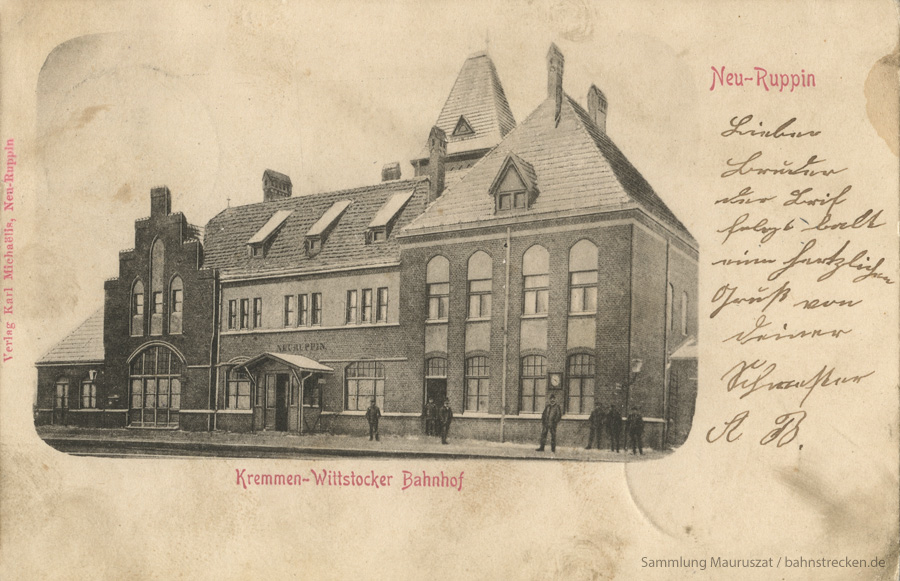 Neu-Ruppin
Lieber
Bruder
der Brif
folgt balt
einn hertzlichen
Gruß von
deiner
Schwester
A B.
NEURUPPIN.
Verlag Karl Michaëlis, Neu-Ruppin
Kremmen-Wittstocker Bahnhof
Sammlung Mauruszat / bahnstrecken.de